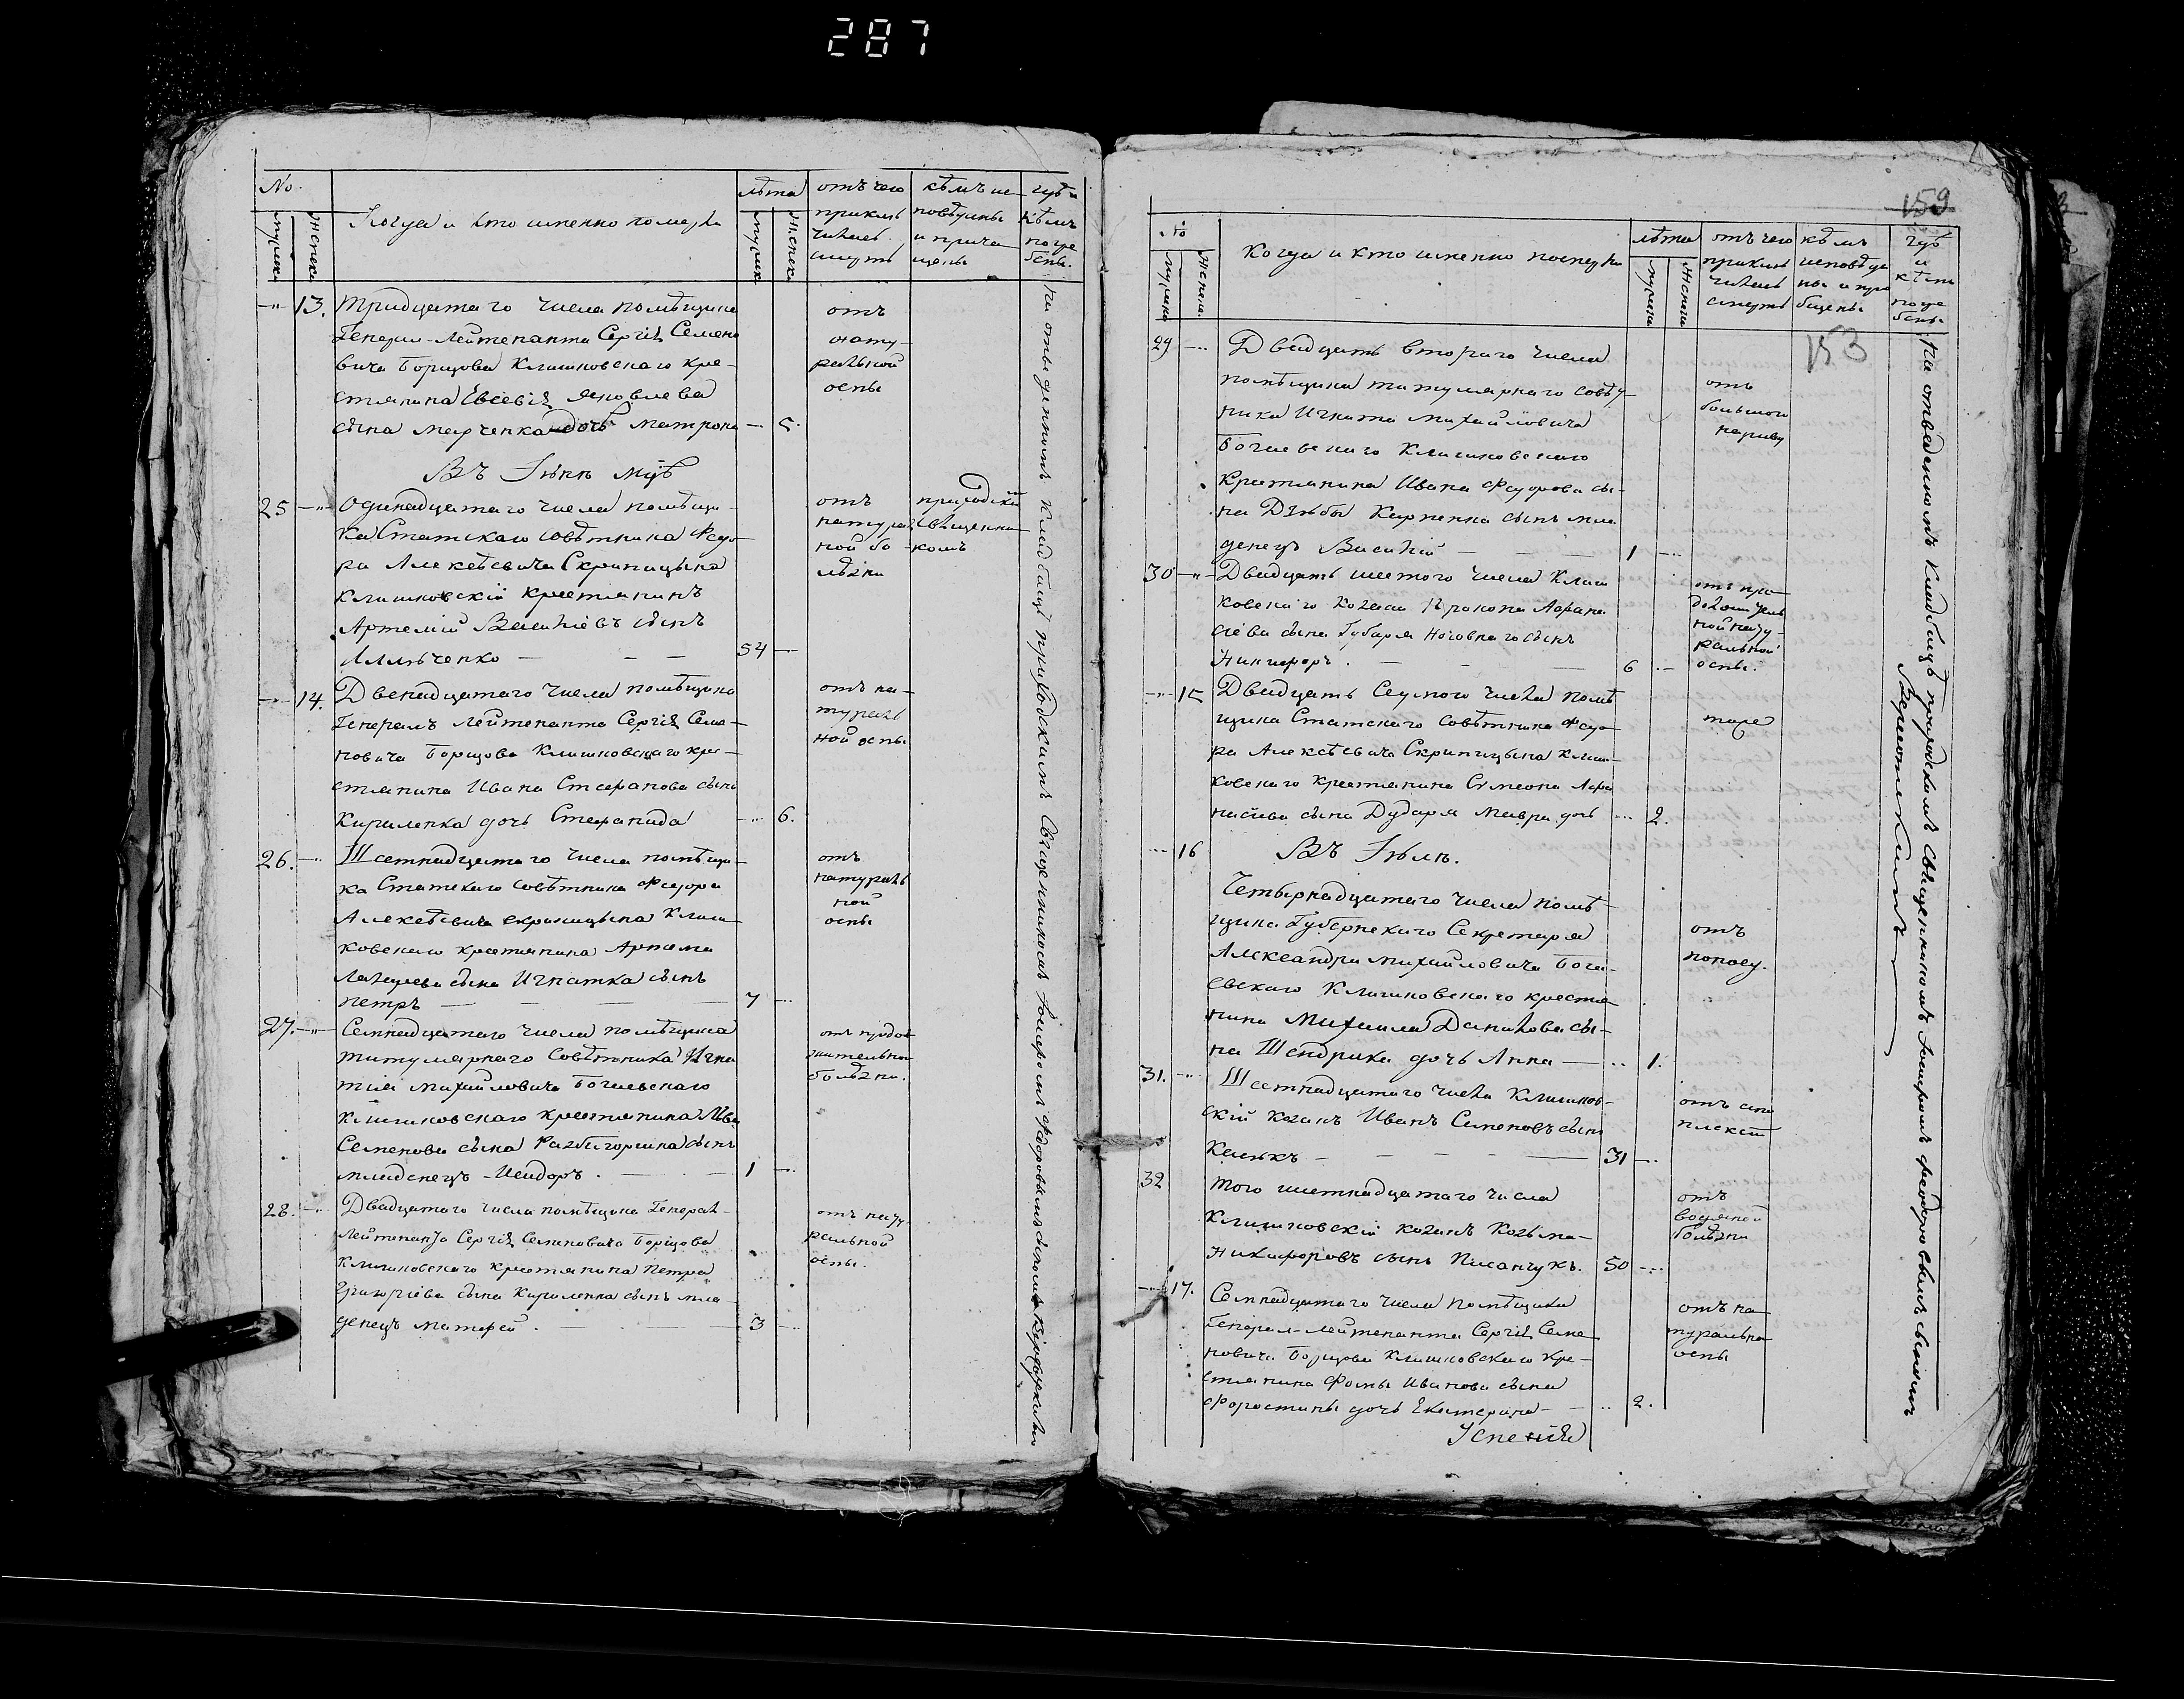 287
No.
мужска
женска
Когда и кто именно померли
лѣта
мужска
женска
отъ чего
приклю
чилась
смерть
кѣмъ ис
повѣдины
и прича
щены
гдѣ и
кѣмъ
погре
бены.
13. Тридцатаго числа помѣщика
Генерал-Лейтенанта Сергія Семено
вича Борщова Клишковскаго кре-
стянина Евсевія Яковлева
сына Марченка дочь Матрона — 5.
отъ
нату-
ральной
оспы
Въ Іюнѣ мцѣ
25 Одинадцатаго числа помѣщи-
ка Статскаго совѣтника Федо-
ра Алексѣевича Скрипицына
Клишковскій крестянинъ
Артемій Василіевъ сынъ
Ильченко — — — 54
отъ
натураль
ной бо
лѣзни
приходскимъ
священни
комъ
14. Двенадцатаго числа помѣщика
Генералъ Лейтенанта Сергія Семе-
новича Борщова Клишковскаго кре-
стянина Ивана Стефанова сына
Кириленка дочь Стефанида 6.
отъ на-
тураль
ной оспы
26. Шестнадцатаго числа помѣщи-
ка Статскаго совѣтника Федора
Алексѣевича Скрипицына Клиш-
ковскаго крестянина Артема
Лазарева сына Игнатка сынъ
Петръ — — — 7
отъ
натураль
ной
оспы
27. Семнадцатаго числа помѣщика
титулярнаго Совѣтника Игна
тія Михайловича Богаевскаго
Клишковскаго крестянина
Семенова сына сынъ
младенецъ Исидоръ. — — 1
отъ продол
жительно
болѣзни.
28. Двадцатаго числа помѣщика Генерал-
Лейтенанта Сергія Семеновича Борщова
Клишковскаго крестянина Петра
Григоріева сына Кириленка сынъ мла-
денецъ Матфей. — — 3
отъ нату-
ральной
оспы.
На отведенномъ кладбищѣ приходскимъ Священникомъ Іосифомъ Федоровымъ сыномъ
159
153
No
мужска
женска.
Когда и кто именно померли
лѣта
мужска
женска
отъ чего
приклю
чилась
смерть
кѣмъ
исповѣда
ны и при
общены
гдѣ
и
кѣмъ
погре
бены
29 Двадцать втораго числа
помѣщика титулярнаго совѣт-
ника Игната Михайловича
Богаевскаго Клишковскаго
Крестянина Ивана Федорова сы-
на Карпенка сынъ мла
денецъ Василій — — — 1
отъ
большого
нариву
30 Двадцать шестого числа Клиш
ковскаго козака Прокопа Афана
сіева сына Губаря сынъ
Никифоръ. — — — 6
отъ про
должитель
ной нату-
ральной
оспы.
15 Двадцать Седмого числа помѣ
щика Статскаго Совѣтника Федо-
ра Алексѣевича Скрипицына Клиш-
ковскаго крестянина Симеона Афа
насіева сына Дударя Мавра дочь 2.
тоже
16 Въ Іюлѣ.
Четырнадцатаго числа помѣ-
щика Губернскаго Секретаря
Александра Михайловича Бога-
евскаго Клишковскаго крестя
нина Михаила Данилова сы-
на Шендрика дочь Анна — 1.
отъ
поносу.
31. Шестнадцатаго числа Клишков-
скій козакъ Иванъ Семеновъ сынъ
— — — 31
отъ апо
плексіи
32 Того шестнадцатаго числа
Клишковскій козакъ Козьма
Никифоровъ сынъ Писанчукъ. 50
отъ
водяной
болѣзни
17. Семнадцатаго числа помѣщика
Генерал-лейтенанта Сергія Семе
новича Борщова Клишковскаго кре-
стянина Фомы Иванова сына
Форостины дочь Екатерина — 2.
отъ на
туральна
оспы
На отведенномъ кладбищѣ приходскимъ Священникомъ Іосифомъ Феодоровымъ сыномъ